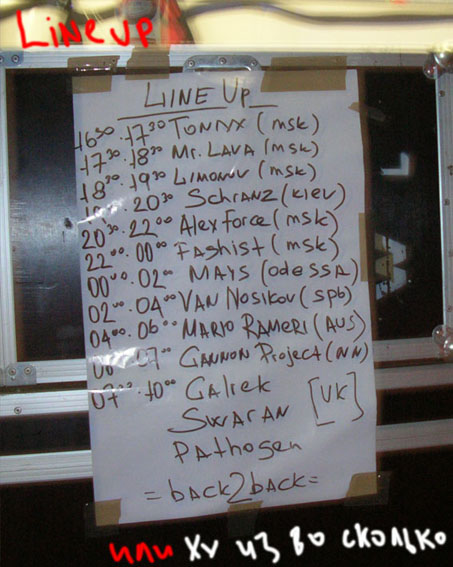 Lineup
LINE UP
16³⁰.17³⁰ TONIX (msk)
17³⁰.18³⁰ Mr. LAVA (msk)
18³⁰.19³⁰ LIMONOV (msk)
20³⁰ SchRANZ (kiev)
20³⁰.22⁰⁰ Alex force (msk)
22⁰⁰.00⁰⁰ FAshist (msk)
00⁰⁰.02⁰⁰ MAYS (odESSA)
02⁰⁰.04⁰⁰ VAN NOSIKOV (spb)
04⁰⁰.06⁰⁰ MARIO RAMERI (AUS)
07⁰⁰ GANNON Project (NN)
07⁰⁰.10⁰⁰ GALIEK
SWARAN [UK]
PAthogen
=bACK2bACK=
или ху из во сколько